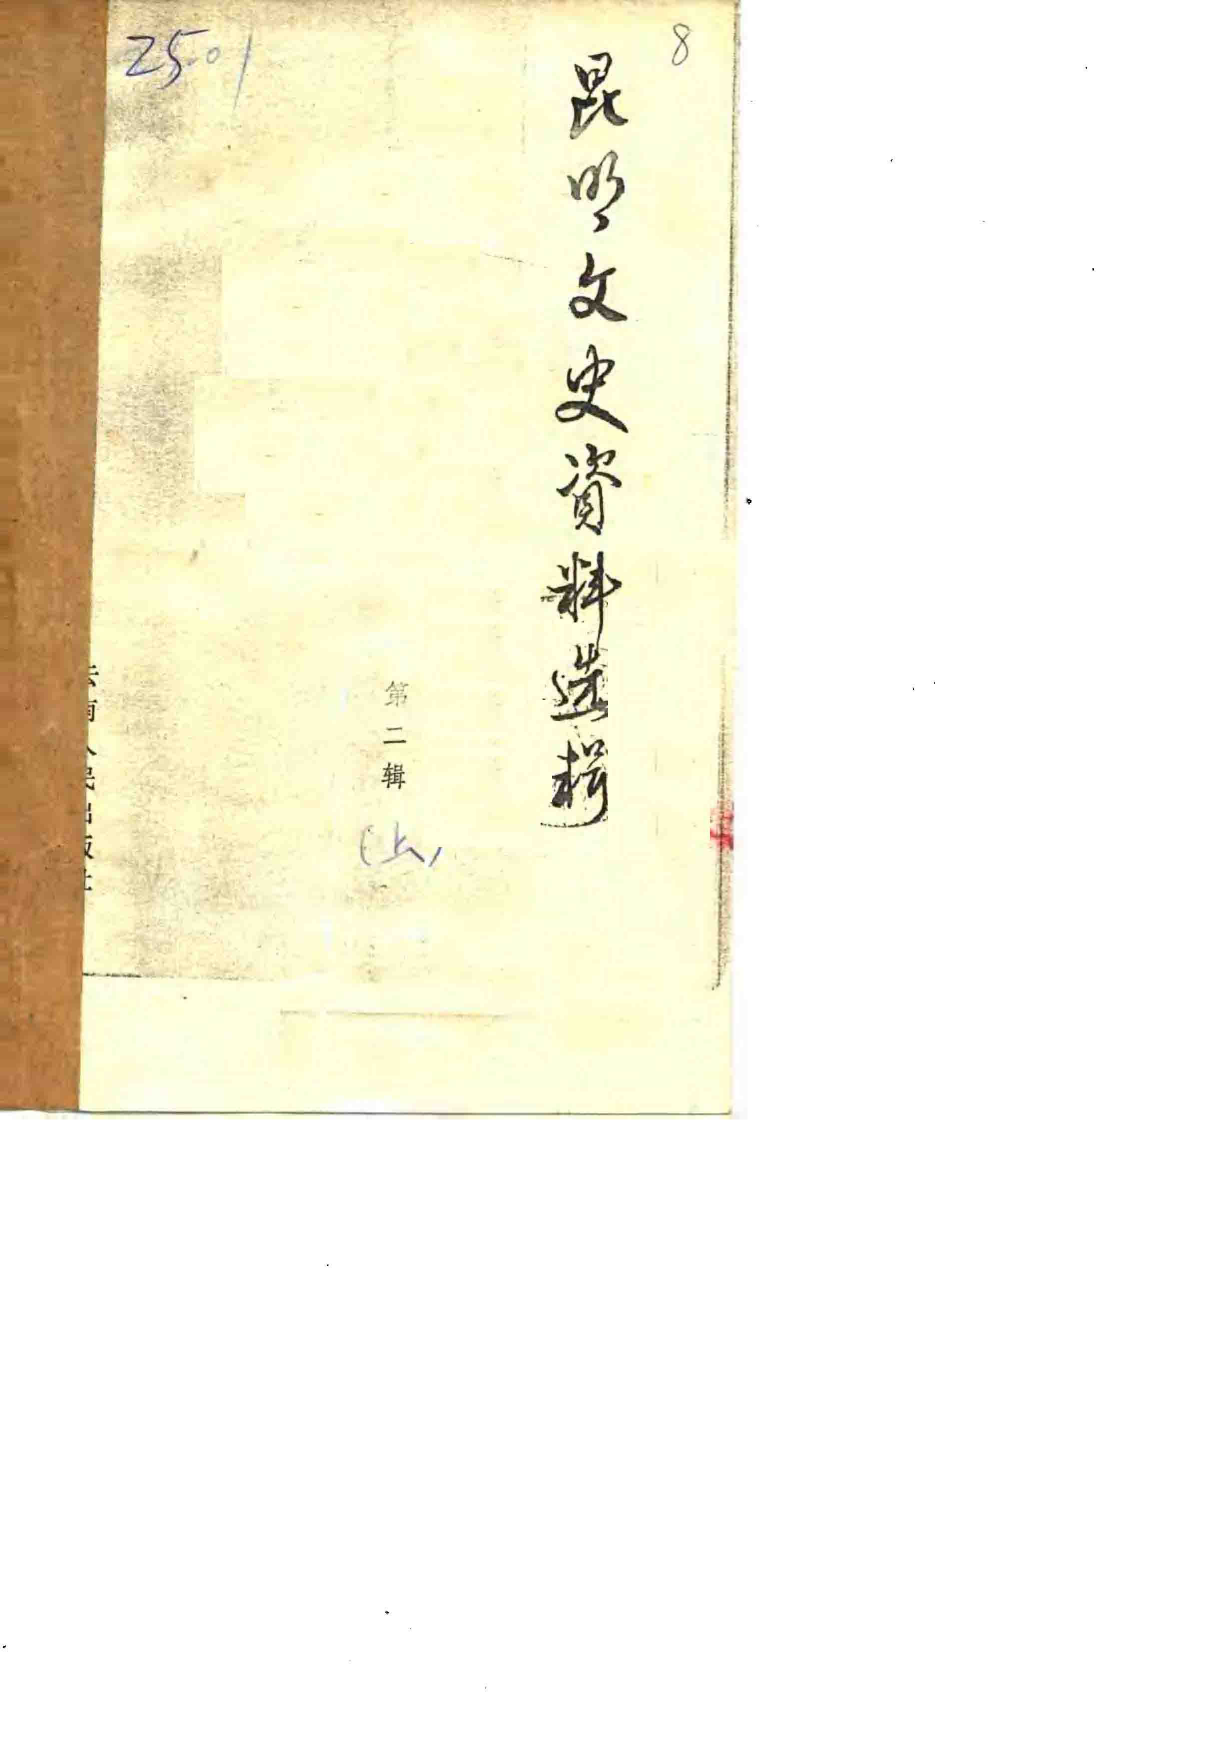 8
昆明文史資料选輯
第二辑
(上)
云南人民出版社
250/